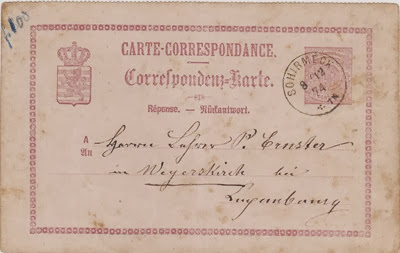 p 100
CARTE-CORRESPONDANCE.
Correspondenz-Karte.
Réponse. — Rückantwort.
SCHIRMECK
8 12
74
A
An
Herrn Lehrer P. Ernster
in Weyerskirch bei
Luxembourg